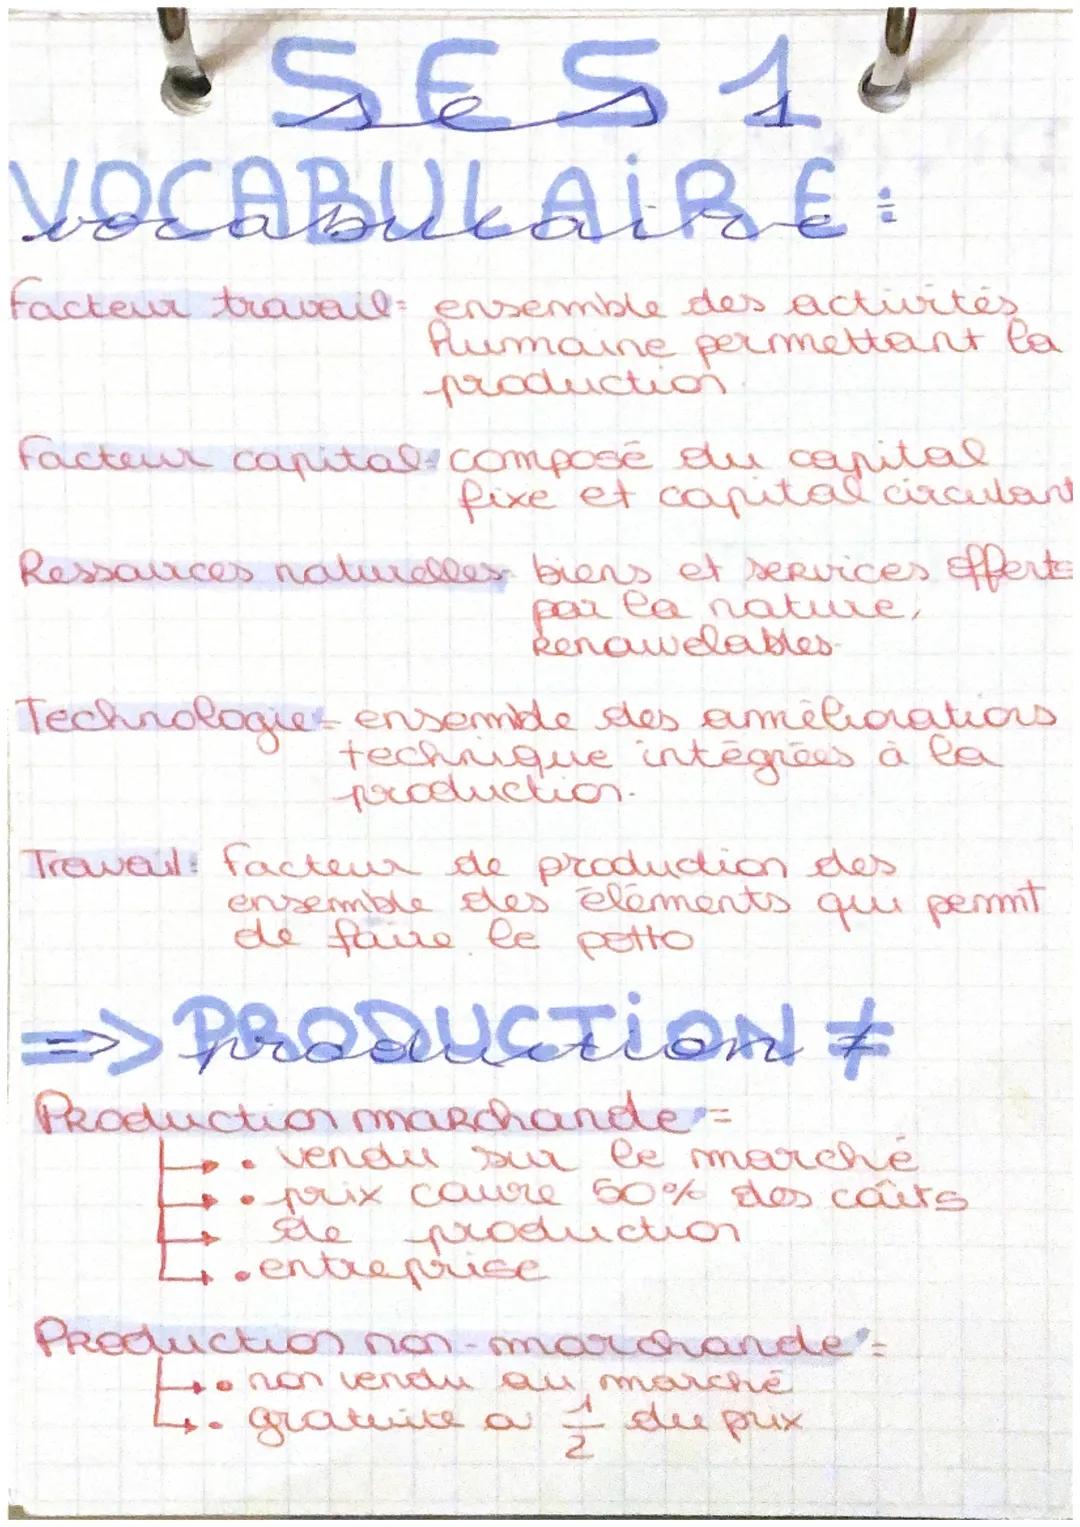 SES 1
VOCABULAIRE :
facteur travail = ensemble des activités
humaine permettant la
production
facteur capital = composé du capital
fixe et capital circulant
Ressources naturelles = biens et services offerts
par la nature,
Renouvelables.
Technologie = ensemble des améliorations
technique intégrées à la
production.
Travail : facteur de production des
ensemble des éléments qui permit
de faire le
=> PRODUCTION ≠
Production marchande =
• vendu sur le marché
• prix couvre 50% des coûts
de production
• entreprise
Production non-marchande =
• non vendu au marché
• gratuite a 1/2 du prix